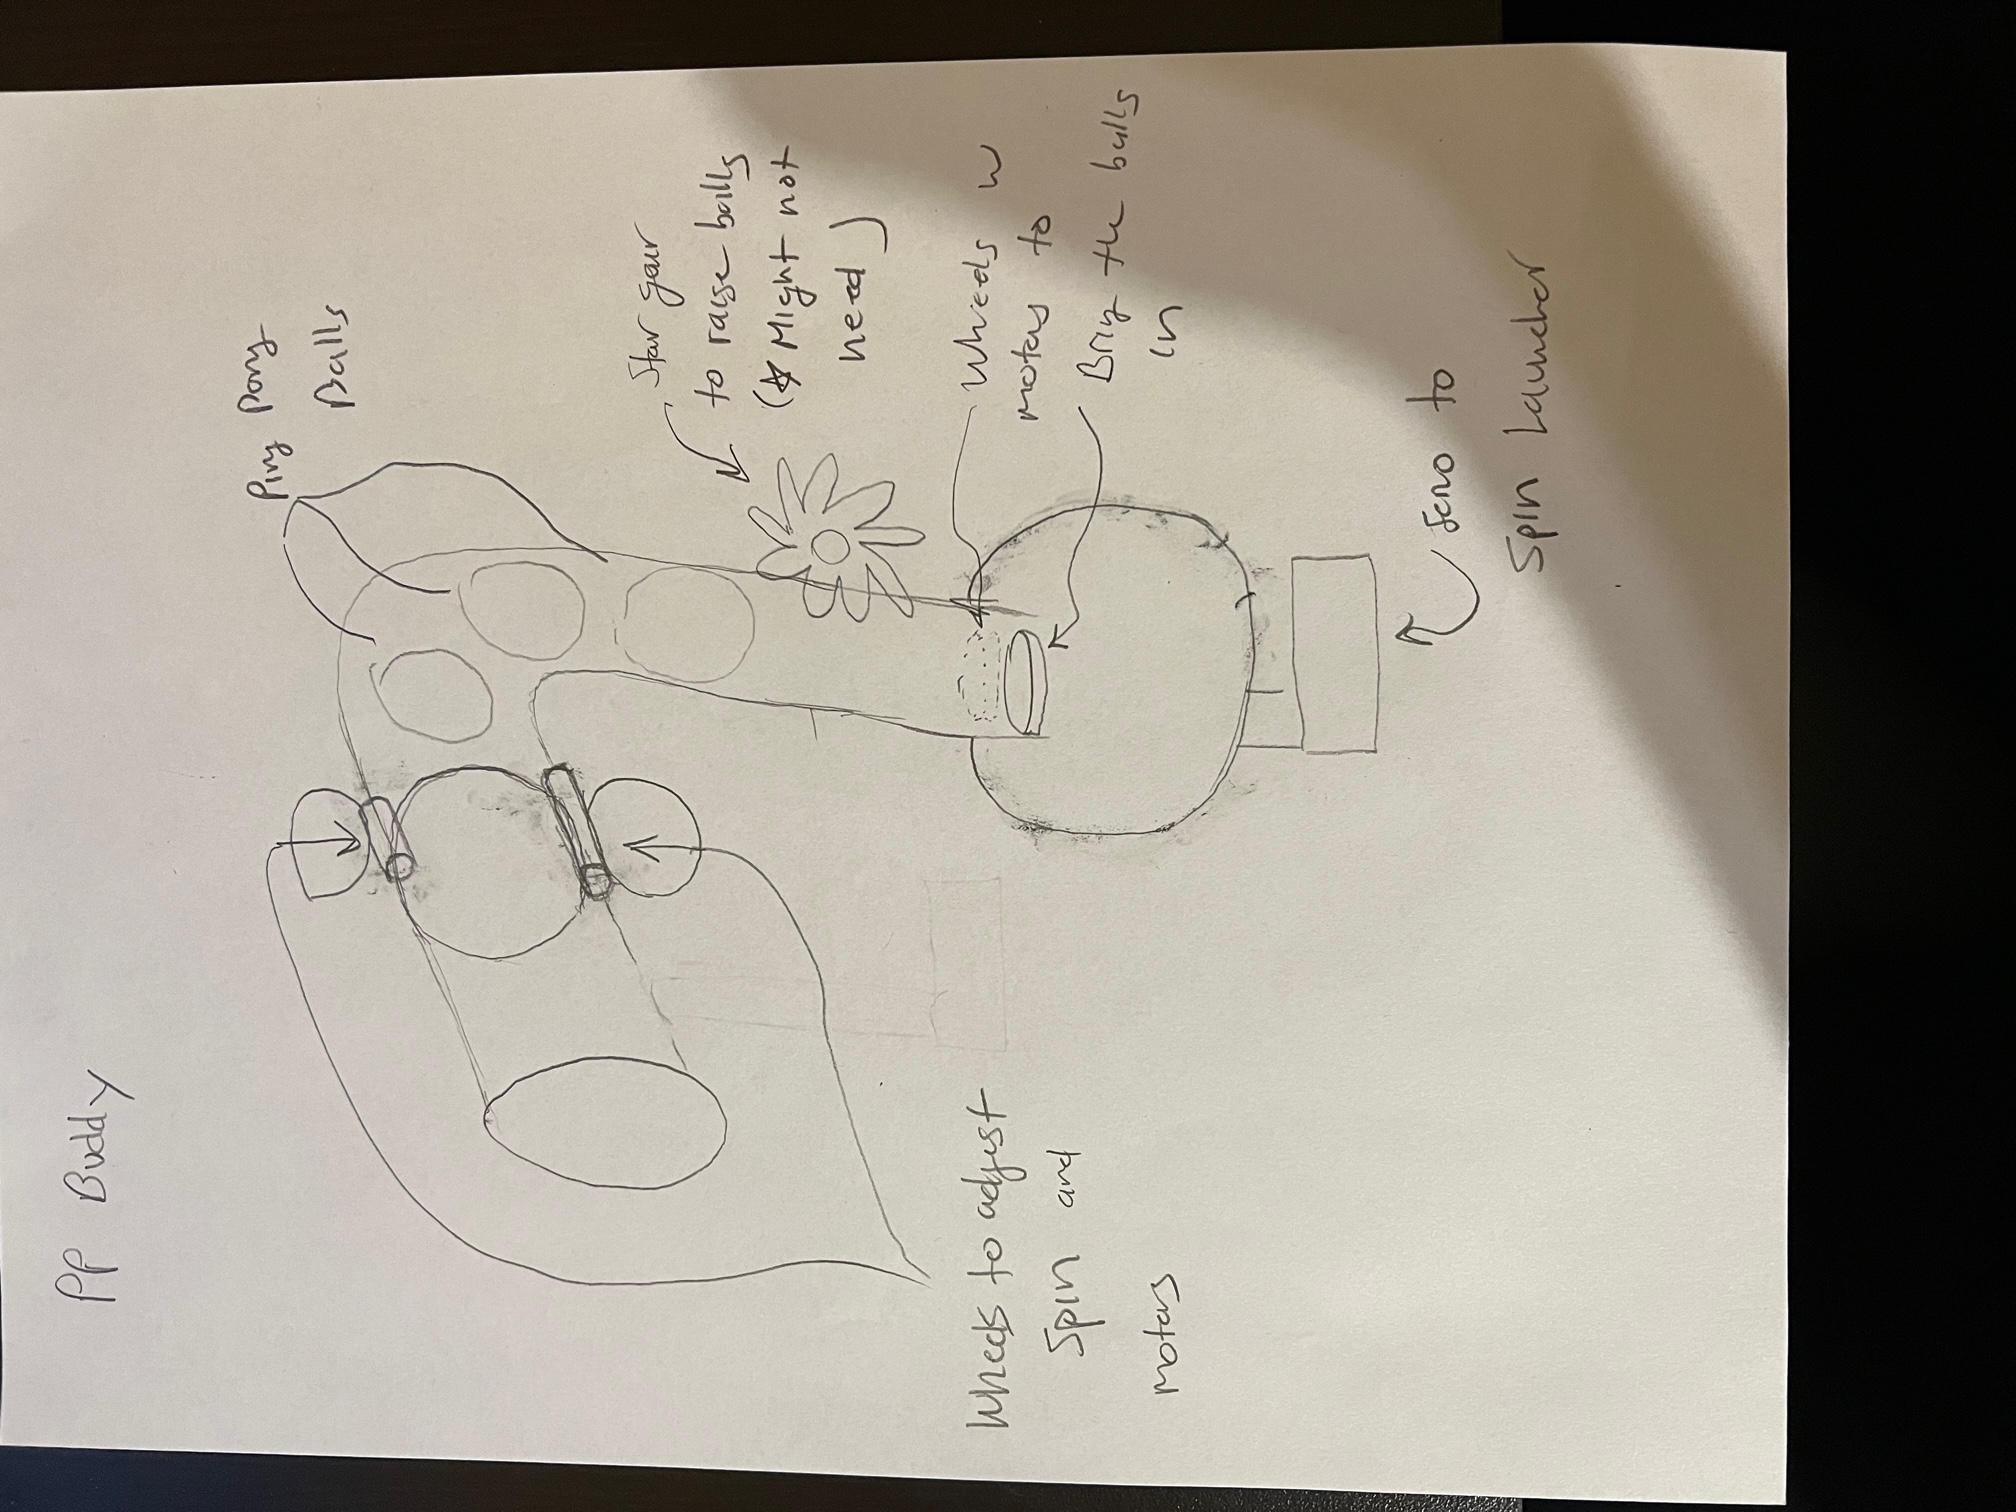 PP Buddy
Ping Pong
Balls
Star gear
to raise balls
(☆ Might not
need)
Wheels to adjust
Spin and
motors
Wheels w
motors to
Bring the balls
in
servo to
Spin Launcher